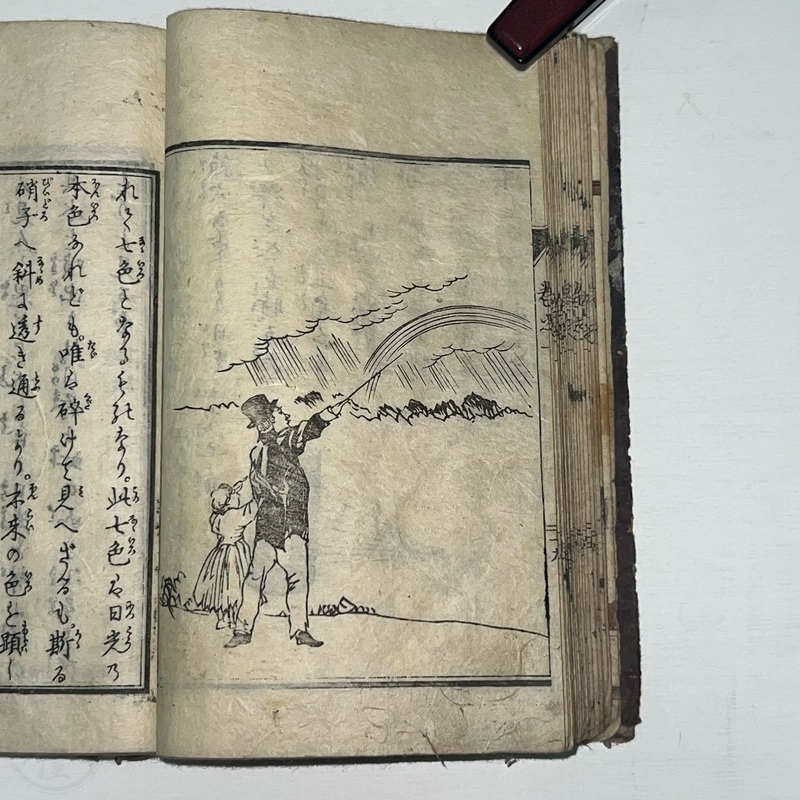 れて七色となるものなり。此七色は日光乃
本色なれども。唯は碎けて見へざるも。斯る
硝子へ斜に透き通るより。本来の色を顕し